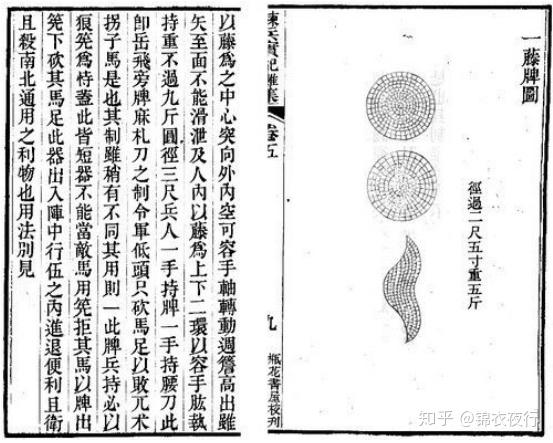 一藤牌圖
徑過二尺五寸重五斤
練兵實紀雜集
卷五
九
瓶花書屋校刋
以藤爲之中心突向外內空可容手軸轉動週簷高出雖
矢至面不能滑泄及人內以藤爲上下二環以容手肱執
持重不過九斤圓徑三尺兵人一手持牌一手持腰刀此
卽岳飛旁牌麻札刀之制令軍低頭只砍馬足以敗兀术
拐子馬是也其制雖稍有不同其用則一此牌兵持必以
筅爲恃蓋此皆短器不能當敵馬用筅拒其馬以牌出
筅下砍其馬足此器出入陣中行伍之內進退便利且衛
且殺南北通用之利物也用法別見
知乎 @錦衣夜行